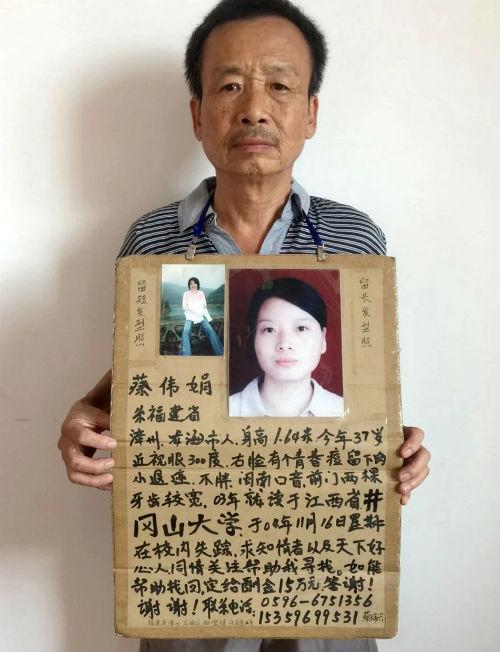 留短发型照
留长发型照
蔡伟娟
系福建省
漳州,龙海市人,身高1.64米今年37岁
近视眼300度,右脸有个青春痘留下的
小疤迹,不胖,闽南口音,前门两棵
牙齿较宽,03年就读于江西省井
冈山大学,于04年11月16日星期
在校内失踪,求知情者以及天下好
心人同情关注帮助我寻找,如能
帮助找回定给酬金15万元答谢!
谢谢!联系电话:0596-6751356
15359699531